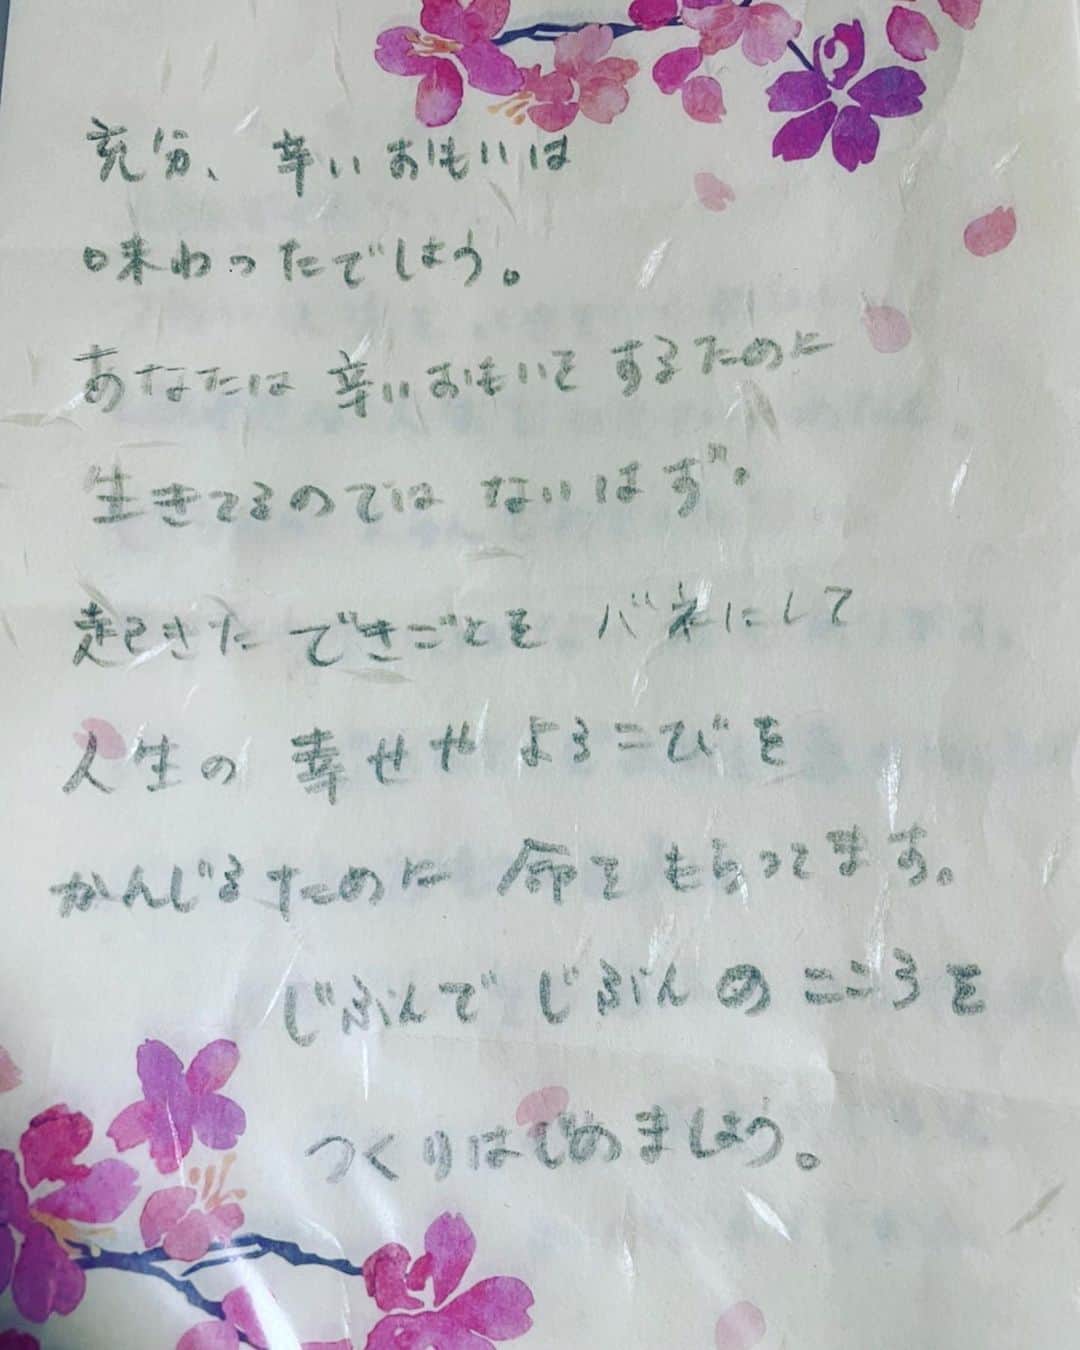 充分、辛いおもいは
味わったでしょう。
あなたは辛いおもいをするために
生きてるのではないはず。
起きたできごとをバネにして
人生の幸せやよろこびを
かんじるために命をもらってます。
じぶんでじぶんのこころを
つくりはじめましょう。